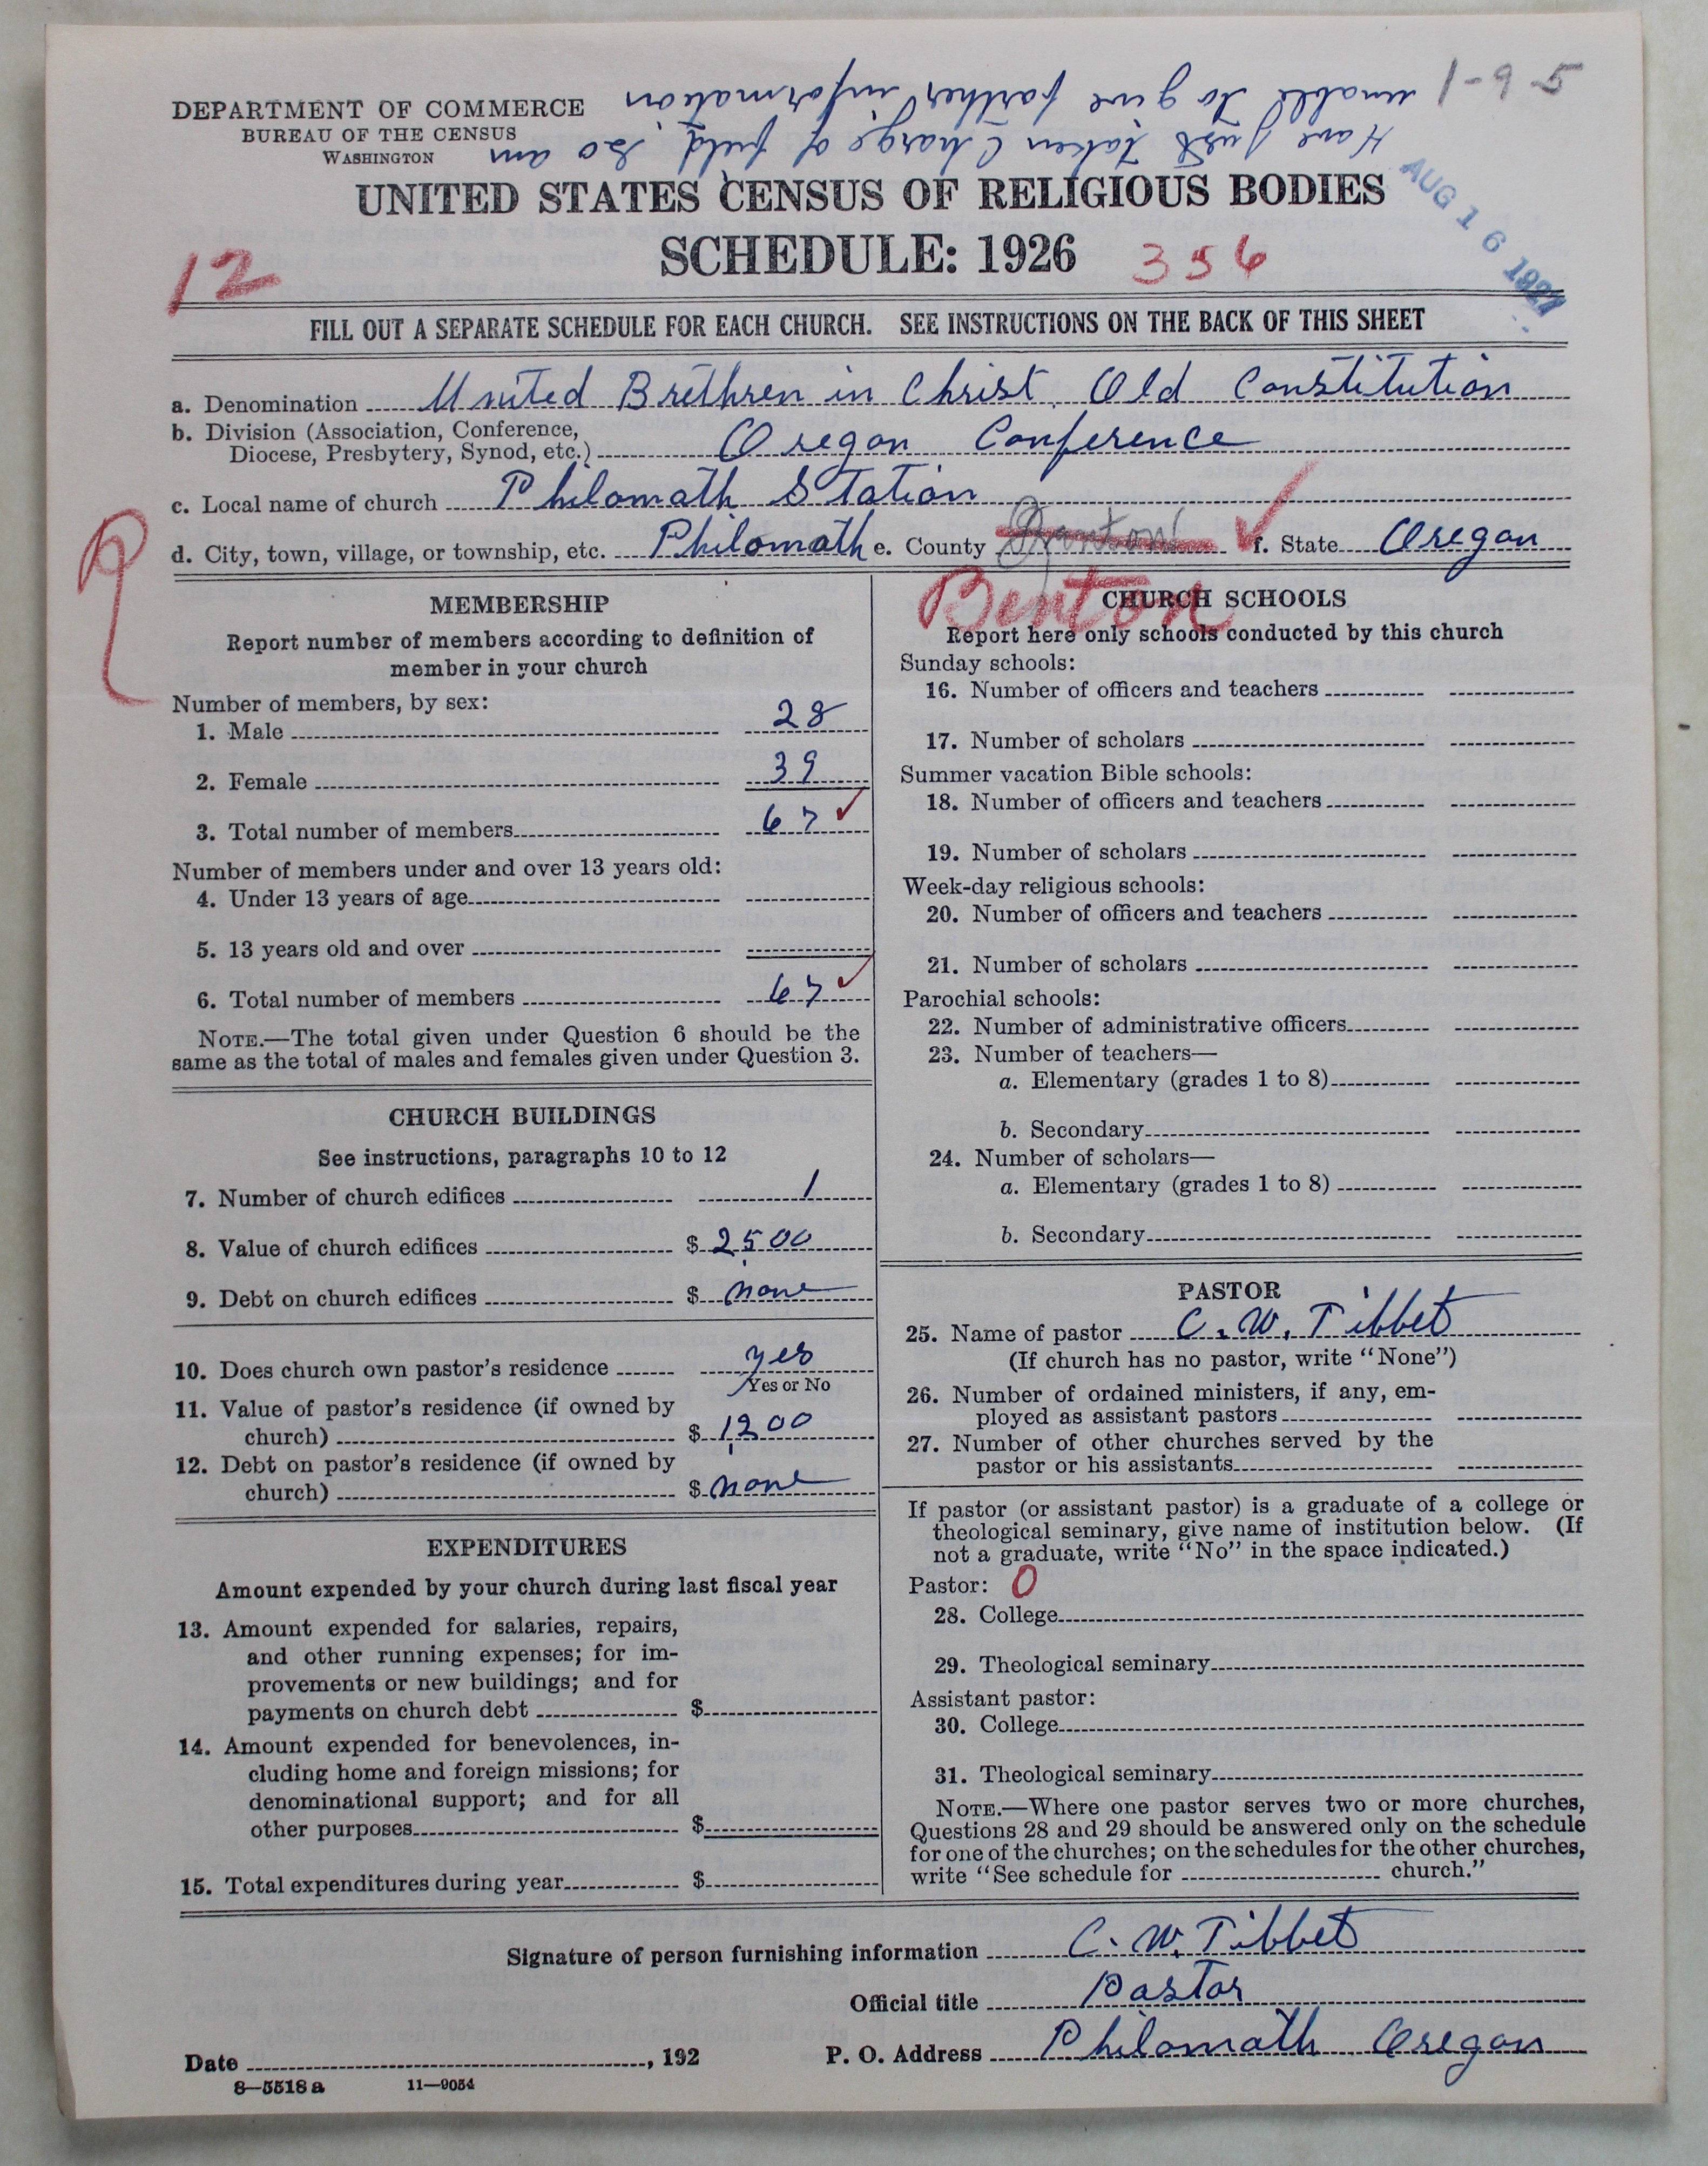 1-95
Have Just taken Charge of field, so am
unable to give farther information
DEPARTMENT OF COMMERCE
BUREAU OF THE CENSUS
WASHINGTON
AUG 16 1927
UNITED STATES CENSUS OF RELIGIOUS BODIES
SCHEDULE: 1926
356
12
FILL OUT A SEPARATE SCHEDULE FOR EACH CHURCH. SEE INSTRUCTIONS ON THE BACK OF THIS SHEET
a. Denomination United Brethren in Christ. Old Constitution
b. Division (Association, Conference,
Diocese, Presbytery, Synod, etc.) Oregon Conference
c. Local name of church Philomath Station
d. City, town, village, or township, etc. Philomath e. County Benton f. State Oregon
Benton
MEMBERSHIP
Report number of members according to definition of
member in your church
Number of members, by sex:
1. Male 28
2. Female 39
3. Total number of members 67
Number of members under and over 13 years old:
4. Under 13 years of age
5. 13 years old and over
6. Total number of members 67
NOTE.—The total given under Question 6 should be the
same as the total of males and females given under Question 3.
CHURCH BUILDINGS
See instructions, paragraphs 10 to 12
7. Number of church edifices 1
8. Value of church edifices $ 2,500
9. Debt on church edifices $ none
10. Does church own pastor's residence yes
Yes or No
11. Value of pastor's residence (if owned by
church) $ 1,200
12. Debt on pastor's residence (if owned by
church) $ none
EXPENDITURES
Amount expended by your church during last fiscal year
13. Amount expended for salaries, repairs,
and other running expenses; for im-
provements or new buildings; and for
payments on church debt $
14. Amount expended for benevolences, in-
cluding home and foreign missions; for
denominational support; and for all
other purposes $
15. Total expenditures during year $
CHURCH SCHOOLS
Report here only schools conducted by this church
Sunday schools:
16. Number of officers and teachers
17. Number of scholars
Summer vacation Bible schools:
18. Number of officers and teachers
19. Number of scholars
Week-day religious schools:
20. Number of officers and teachers
21. Number of scholars
Parochial schools:
22. Number of administrative officers
23. Number of teachers—
a. Elementary (grades 1 to 8)
b. Secondary
24. Number of scholars—
a. Elementary (grades 1 to 8)
b. Secondary
PASTOR
25. Name of pastor C. W. Tibbet
(If church has no pastor, write "None")
26. Number of ordained ministers, if any, em-
ployed as assistant pastors
27. Number of other churches served by the
pastor or his assistants
If pastor (or assistant pastor) is a graduate of a college or
theological seminary, give name of institution below. (If
not a graduate, write "No" in the space indicated.)
Pastor: 0
28. College
29. Theological seminary
Assistant pastor:
30. College
31. Theological seminary
NOTE.—Where one pastor serves two or more churches,
Questions 28 and 29 should be answered only on the schedule
for one of the churches; on the schedules for the other churches,
write "See schedule for church."
Signature of person furnishing information C. W. Tibbet
Official title Pastor
Date , 192
P. O. Address Philomath Oregon
8—5518 a 11—9054